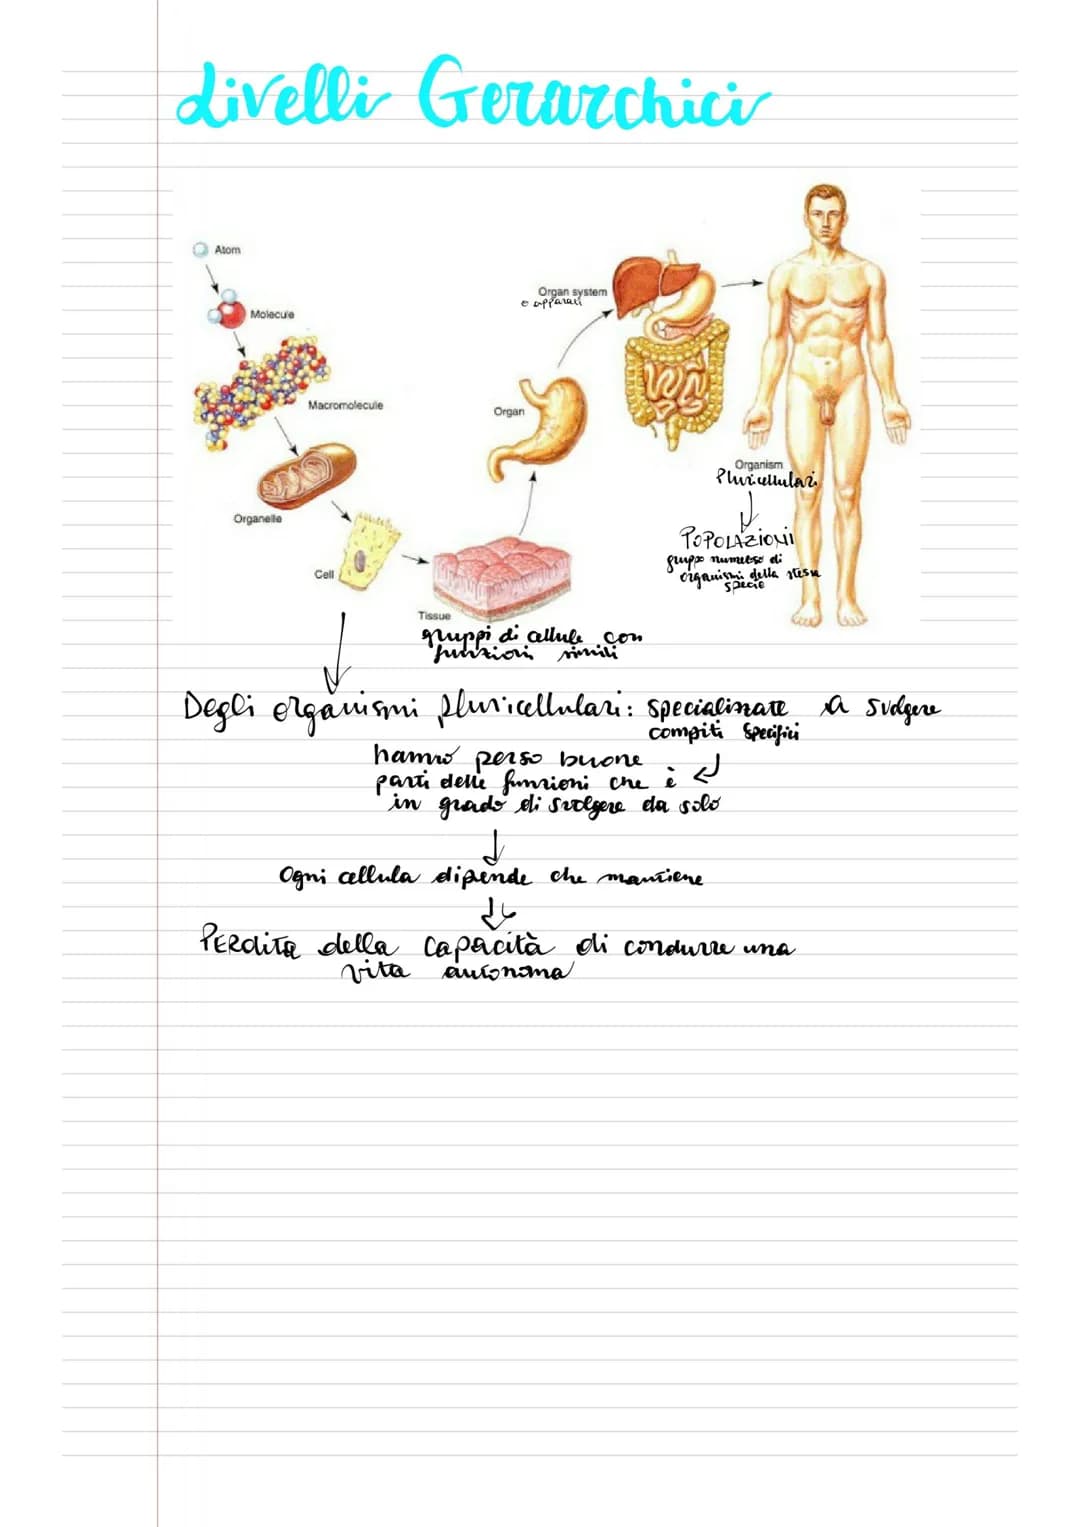 Livelli Gerarchici
Atom
Molecule
Macromolecule
Organelle
Cell
Tissue
gruppi di cellule con
funzioni simili
Organ
Organ system
e apparati
Organism
Pluricellulari
POPOLAZIONI
gruppo numeroso di
organismi della stessa
specie
Degli organismi pluricellulari: specializzate a svolgere
compiti specifici
hanno perso buone
parti delle funzioni che è
in grado di svolgere da solo
Ogni cellula dipende che mantiene
PERdita della capacità di condurre una
vita autonoma